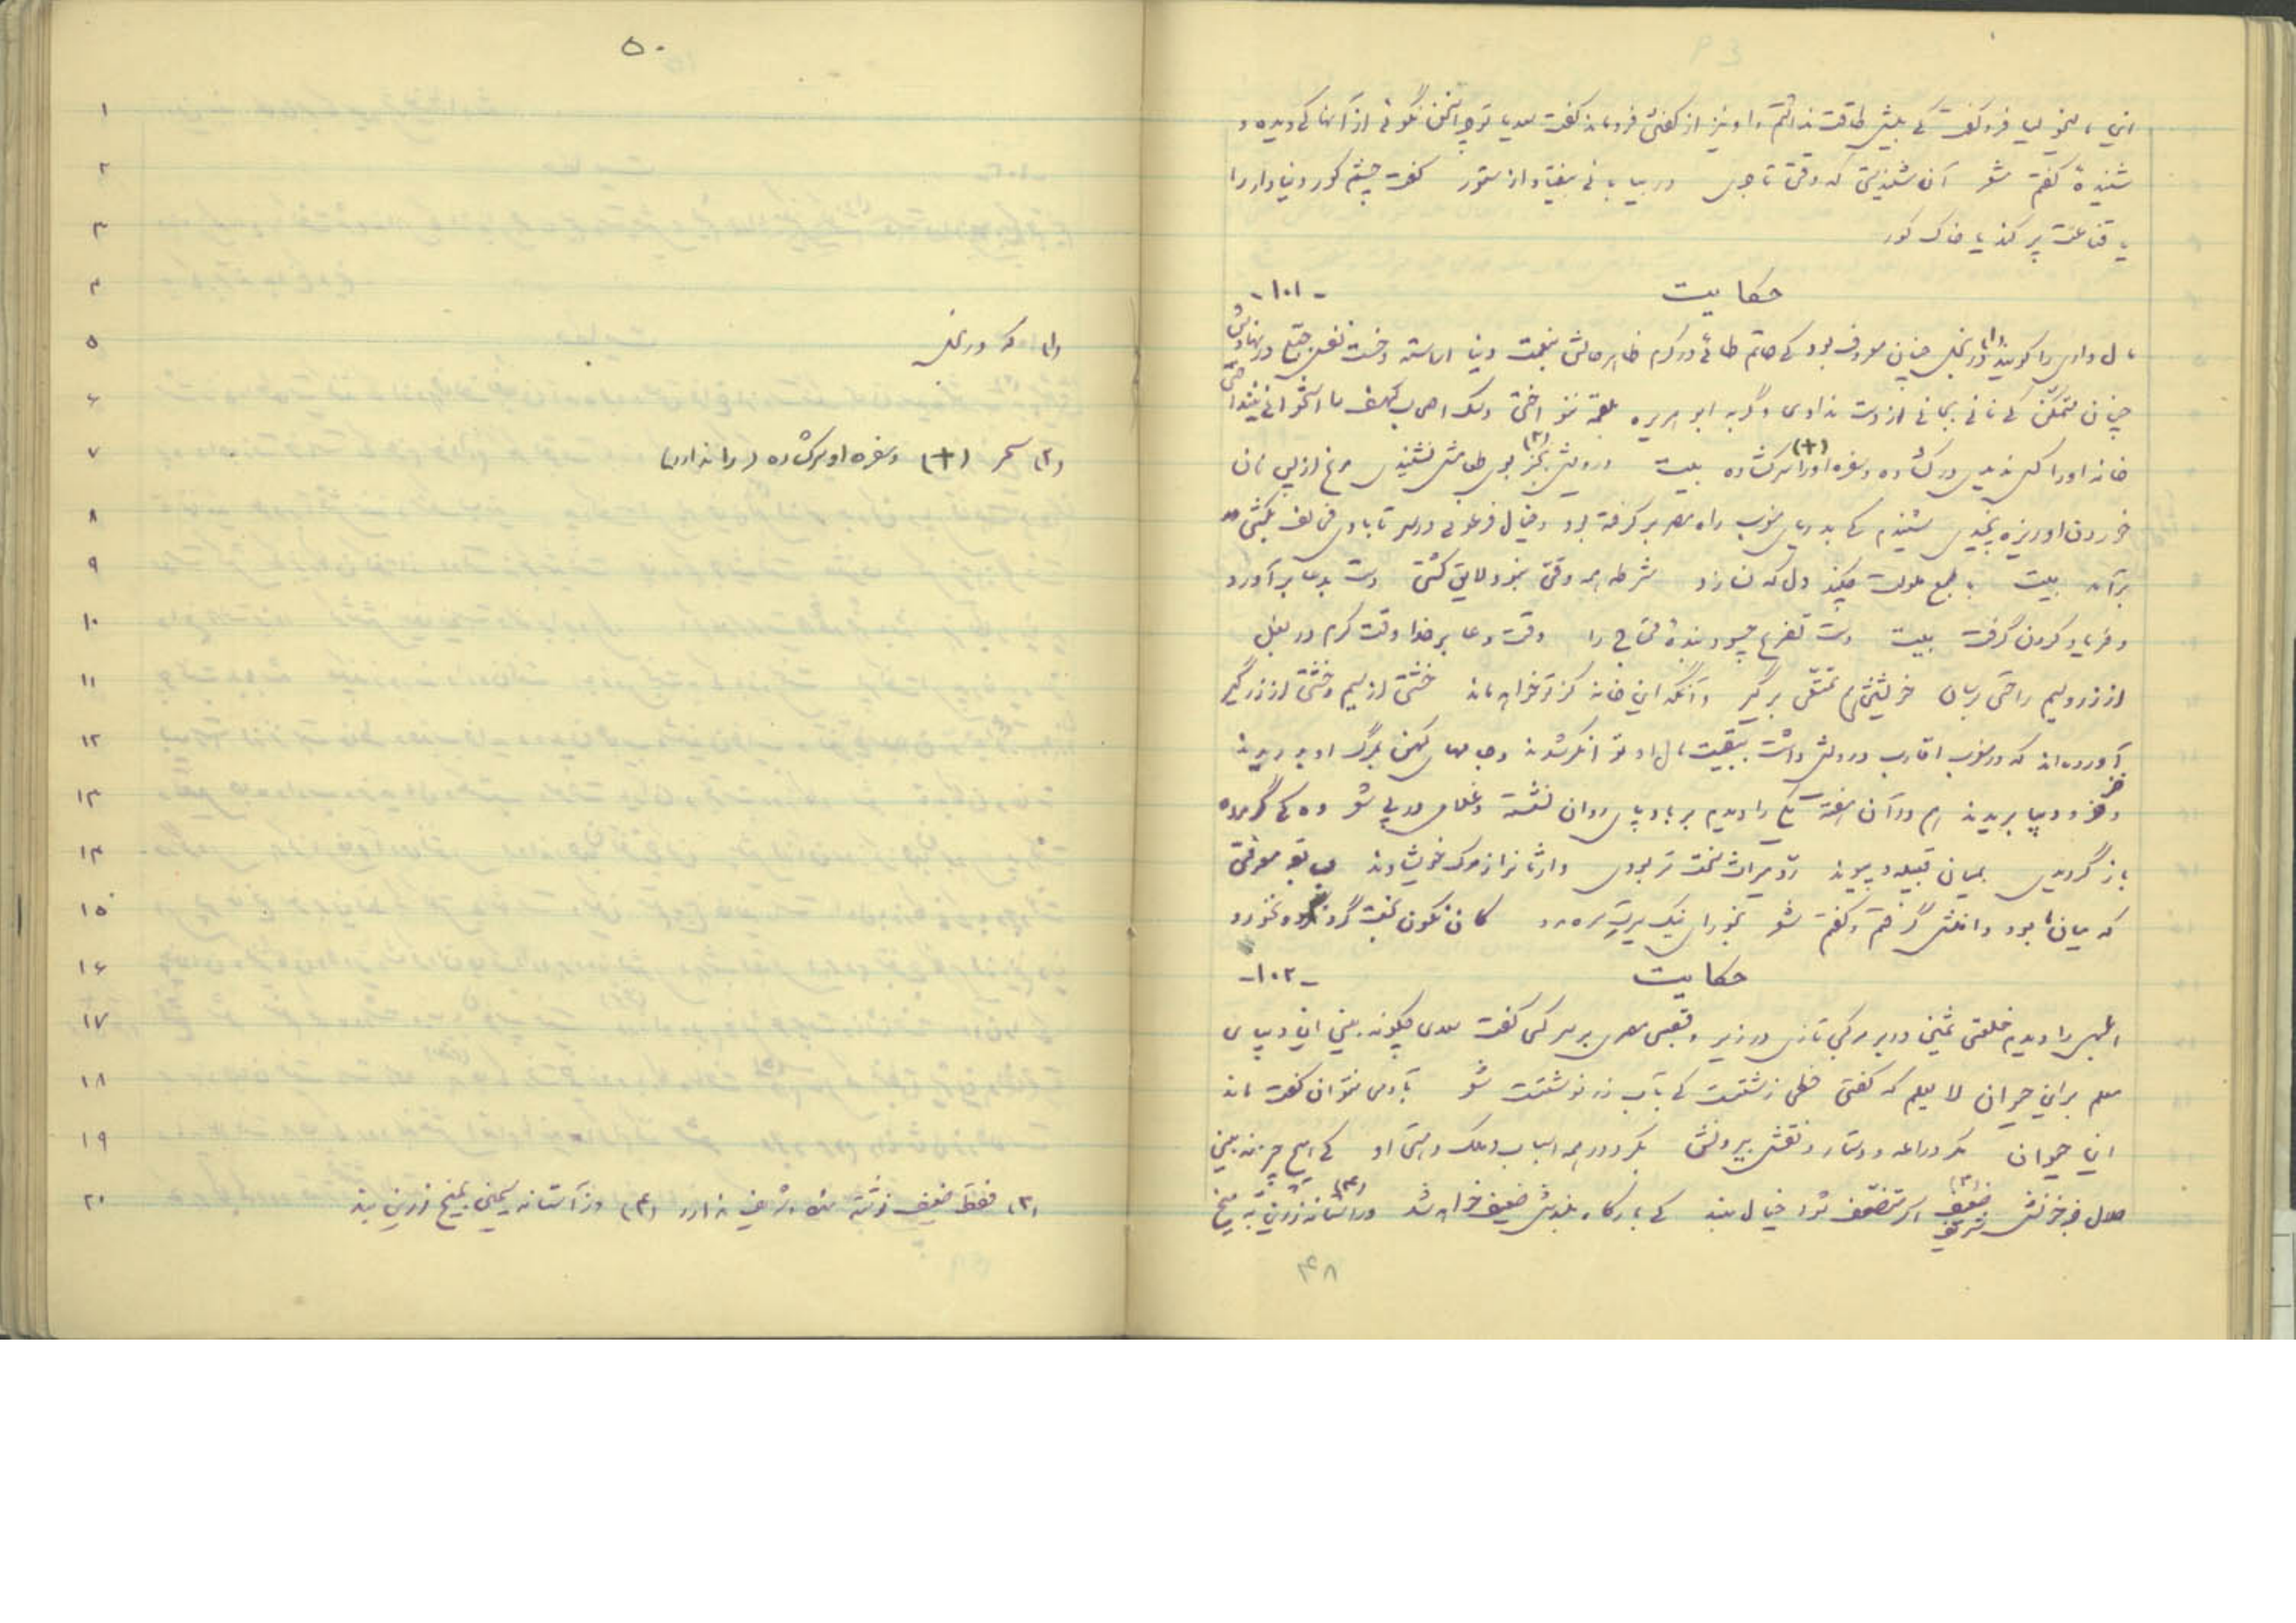 این مالیخولیا فرو گفت کی بیش طاقت نداشتم و او نیز از گفتن فرو ماند گفت سعدیا تو هم سخن نگوئی از آنها کی دیده و
شنیدهٔ گفتم شعر آن شنیدستی که وقتی تاجری در بیابانی بیفتاد از ستور گفت چشم کور دنیا دار را
یا قناعت پر کند یا خاک کور
حکایت -۱۰۱-
مال داری را گویند (۱) در بخل چنان معروف بود کی حاتم طائی در کرم ظاهر حالش بنعمت دنیا اراسته و خست نفس جبلی در نهادش
چنان متمکن کی نانی بجانی از دست ندادی و گربه ابو هریره بلقمه ننواختی و سگ اصحاب کهف را استخوانی نینداختی
خانه اورا کس ندیدی در گشاده و سفره اورا (+) سر گشاده بیت درویش بجز (۲) بوی طعامش نشنیدی مرغ از پس نان
خوردن او ریزه نچیدی شنیدم کی بدریای مغرب راه مصر بر گرفته بود و خیال فرعونی در سر تا بادی مخالف بکشتی
بر آمد بیت با طبع ملولت چکند دل که نسازد شرطه همه وقتی نبود لایق کشتی دست بدعا بر آورد
و فریاد کردن گرفت بیت دست تضرع چسود بندهٔ محتاج را وقت دعا بر خدا وقت کرم در بغل
از زر و سیم راحتی برسان خویشتن هم تمتعی بر گیر وآنگه این خانه کز تو خواهد ماند خشتی از سیم و خشتی از زر گیر
آورده اند که در مغرب اقارب درویش داشت ببقیت مال او توانگر شدند و جامهای کهن بمرگ او بدریدند
و خز و دیبا بریدند هم در آن هفته یکی را دیدم بر باد پای روان نشسته و غلامی در پی شعر وه کی گر مرده
باز گردیدی بمیان قبیله و پیوند رد میراث سخت تر بودی وارثانرا از مرگ خویشاوند بسابقه معرفتی
که میان ما بود دامنش گرفتم و گفتم شعر بخور ای نیک سیرت سره مرد کان نگون بخت گرد کرد و نخورد
حکایت -۱۰۲-
ابلهی را دیدم خلعتی ثمین در بر مرکبی تازی در زیر و قصبی مصری بر سر کسی گفت سعدی چگونه بینی این دیبای
معلم بر این حیوان لا یعلم که گفتی خطی زشتست کی بآب زر نوشتست شعر بآدمی نتوان گفت ماند
این حیوان مگر دراعه و دستار و نقش بیرونش بگرد در همه اسباب و ملک و هستی او کی هیچ چیز نه بینی
حلال جز خونش شریف ضعیف (۳) اگر متضعف شود خیال مبند کی پایگاه بلندش ضعیف خواهد شد ور آستانه زرین (۴) به میخ
۴۸
۵۰
۱
۲
۳
۴
۵ (۱) که در بخل
۶
۷ (۲) سحر (+) و سفره او سر گشاده (را ندارد)
۸
۹
۱۰
۱۱
۱۲
۱۳
۱۴
۱۵
۱۶
۱۷
۱۸
۱۹
۲۰ (۳) فقط ضعیف نوشته شده، شریف ندارد (۴) در آستانه سیمین بمیخ زرین بند